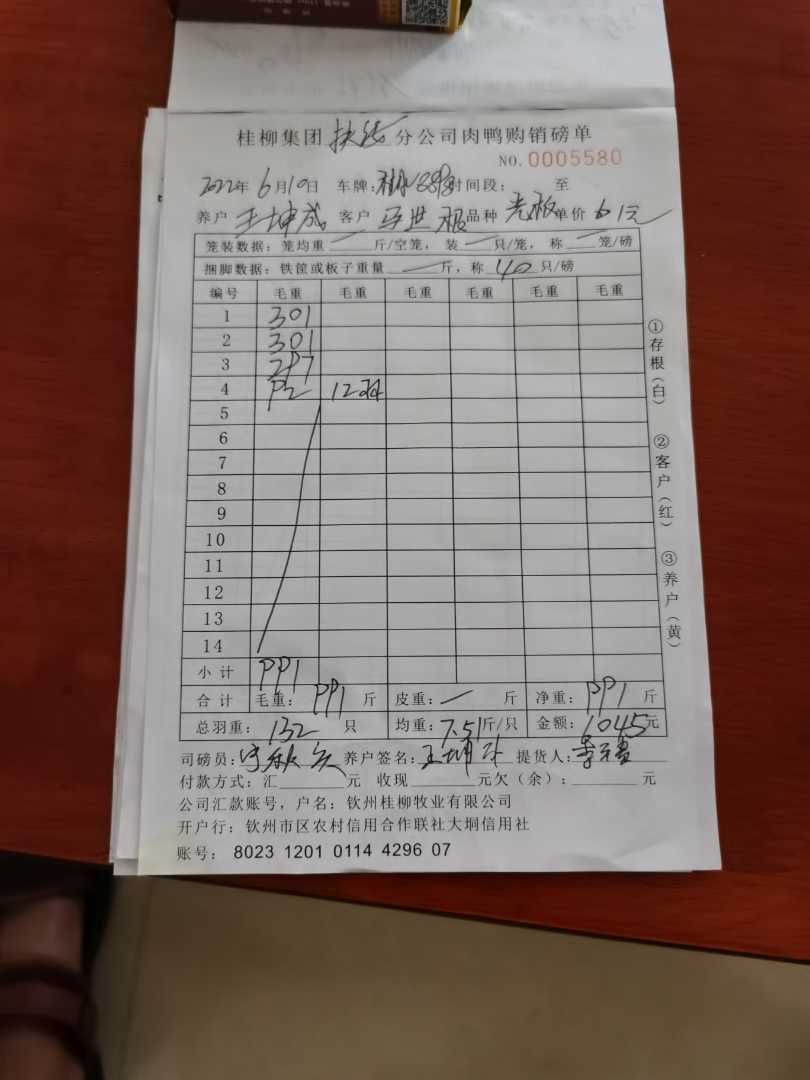 桂柳集团 分公司肉鸭购销磅单
NO.0005580
2022年 6月10日 车牌: 时间段: 至
养户 王坤成 客户 品种 单价 6.1元
笼装数据: 笼均重 一 斤/空笼, 装 一 只/笼, 称 一 笼/磅
捆脚数据: 铁筐或板子重量 一 斤, 称 40 只/磅
编号 毛重 毛重 毛重 毛重 毛重 毛重
1 301
2 301
3 297
4 92 12羽
5
6
7
8
9
10
11
12
13
14
小计 991
合计 毛重: 991 斤 皮重: 一 斤 净重: 991 斤
总羽重: 132 只 均重: 7.51斤/只 金额: 元
司磅员: 养户签名: 王坤 提货人:
付款方式: 汇 元 收现 元欠(余): 元
公司汇款账号, 户名: 钦州桂柳牧业有限公司
开户行: 钦州市区农村信用合作联社大垌信用社
账号: 8023 1201 0114 4296 07
①存根(白)
②客户(红)
③养户(黄)